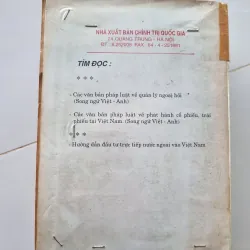 NHÀ XUẤT BẢN CHÍNH TRỊ QUỐC GIA
24 QUANG TRUNG - HÀ NỘI
TÌM ĐỌC :
* * *
- Các văn bản pháp luật về quản lý ngoại hối
(Song ngữ Việt - Anh)
- Các văn bản pháp luật về phát hành cổ phiếu, trái
phiếu tại Việt Nam (Song ngữ Việt - Anh)
* * *
- Hướng dẫn đầu tư trực tiếp nước ngoài vào Việt Nam